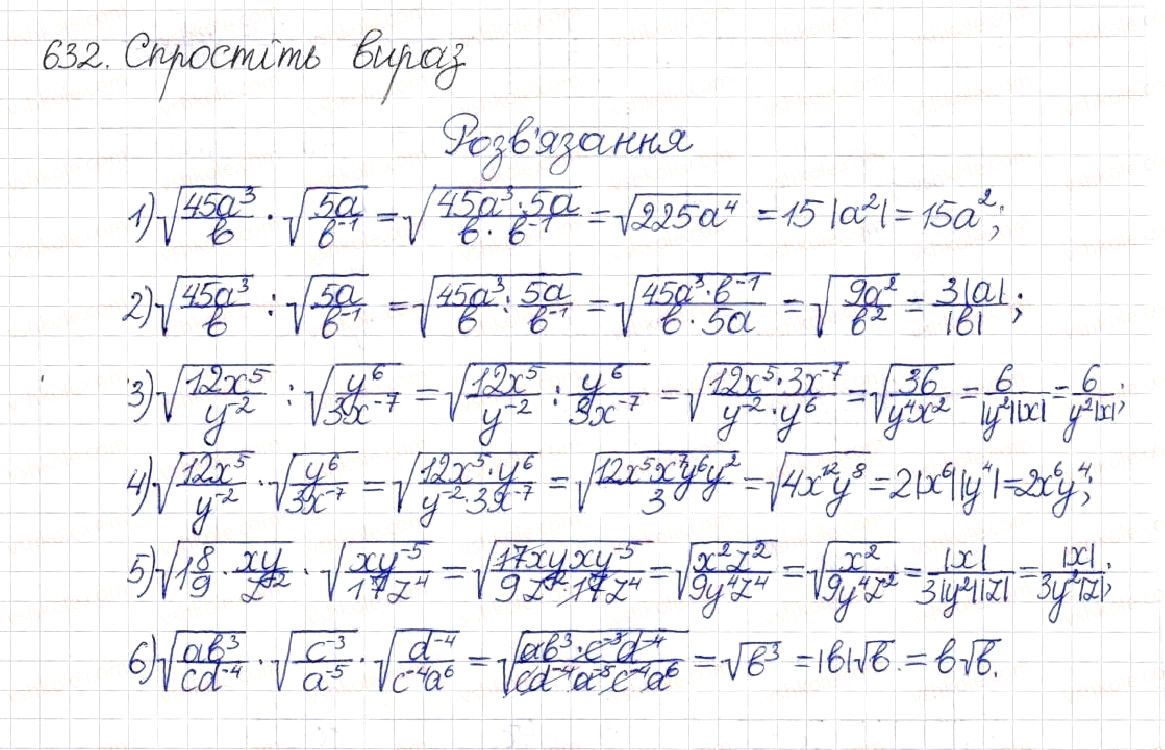 632. Спростіть вираз
Розв'язання
1) √(45a³/b) · √(5a/b⁻¹) = √((45a³·5a)/(b·b⁻¹)) = √(225a⁴) = 15|a²| = 15a²;
2) √(45a³/b) : √(5a/b⁻¹) = √(45a³/b : 5a/b⁻¹) = √((45a³·b⁻¹)/(b·5a)) = √(9a²/b²) = 3|a|/|b|;
3) √(12x⁵/y⁻²) : √(y⁶/3x⁻⁷) = √(12x⁵/y⁻² : y⁶/3x⁻⁷) = √((12x⁵·3x⁻⁷)/(y⁻²·y⁶)) = √(36/y⁴x²) = 6/|y²||x| = 6/y²|x|;
4) √(12x⁵/y⁻²) · √(y⁶/3x⁻⁷) = √((12x⁵·y⁶)/(y⁻²·3x⁻⁷)) = √(12x⁵x⁷y⁶y²/3) = √(4x¹²y⁸) = 2|x⁶||y⁴| = 2x⁶y⁴;
5) √(1 8/9 · xy/z⁻²) · √(xy⁻⁵/17z⁴) = √(17xyxy⁻⁵/9z⁻²·17z⁴) = √(x²z²/9y⁴z⁴) = √(x²/9y⁴z²) = |x|/3|y²||z| = |x|/3y²|z|;
6) √(ab³/cd⁻⁴) · √(c⁻³/a⁻⁵) · √(d⁻⁴/c⁻⁴a⁶) = √(ab³·c⁻³d⁻⁴/cd⁻⁴a⁻⁵c⁻⁴a⁶) = √b³ = |b|√b = b√b.